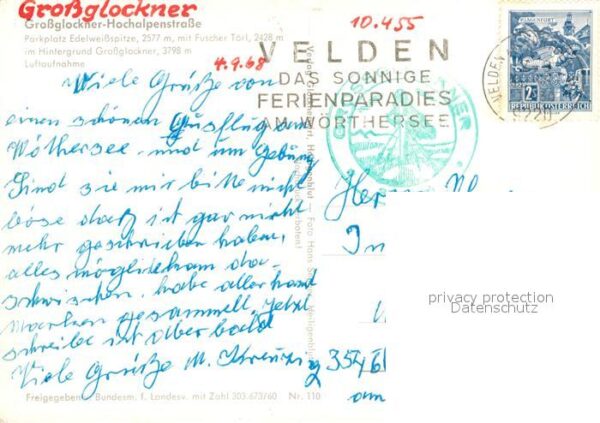 Großglockner
Großglockner-Hochalpenstraße
Parkplatz Edelweißspitze, 2577 m, mit Fuscher Törl, 2428 m
im Hintergrund Großglockner, 3798 m
Luftaufnahme
4.9.68
10.455
VELDEN
DAS SONNIGE
FERIENPARADIES
AM WÖRTHERSEE
KLAGENFURT
2S
REPUBLIK ÖSTERREICH
VELDEN
9220
Viele Grüße von
einen schönen Ausflug am
Wöthersee und um Gebung
Sind sie mir bitte nicht
böse daß ich gar nicht
mehr geschrieben haben,
alles mögliche kam da-
zwischen. habe allerhand
Marken gesammelt, Jetzt
schreibe ich aber bald
Viele Grüße M. Kreuzig
Herrn
In
3546
am
privacy protection
Datenschutz
Freigegeben Bundesm. f. Landesv. mit Zahl 303.673/60 Nr. 110